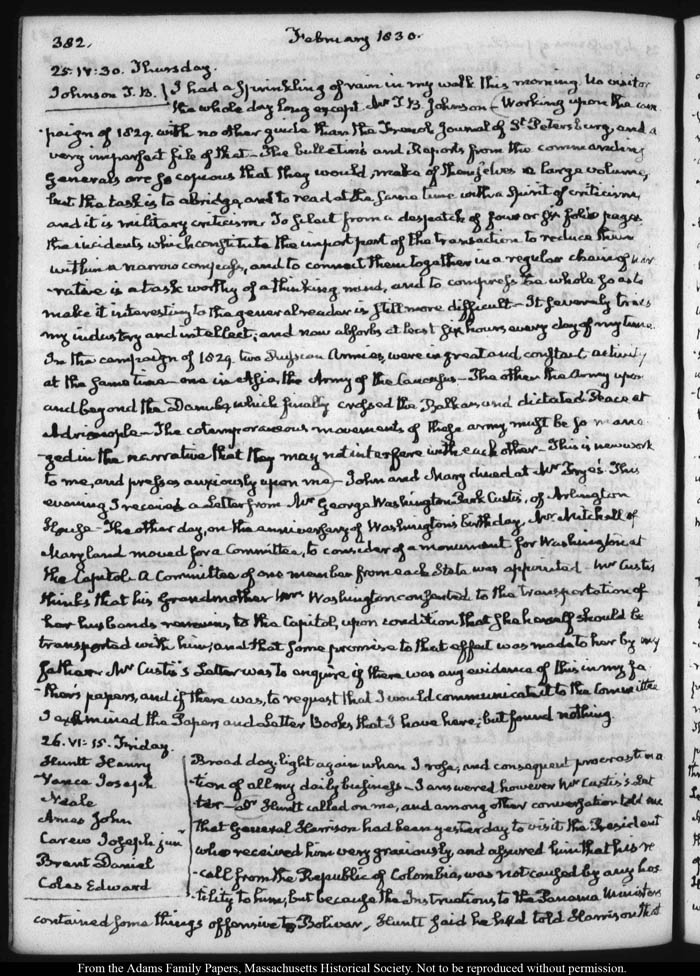 382.
February 1830.
25. IV:30. Thursday.
Johnson J. B. I had a Sprinkling of rain in my walk this morning. No visitor
the whole day long except Mr J. B. Johnson — Working upon the cam-
-paign of 1829. with no other guide than the French Journal of St Petersburg, and a
very imperfect file of that — The bulletins and Reports from the commanding
Generals are so copious that they would make of themselves a large volume,
but the task is to abridge, and to read at the same time with a Spirit of criticism,
and it is military criticism. To select from a despatch of four or six folio pages
the incidents which constitute the import part of the transaction to reduce them
within a narrow compass, and to connect them together in a regular chain of nar-
-rative is a task worthy of a thinking mind, and to compress the whole so as to
make it interesting to the general reader is still more difficult — It severely tries
my industry and intellect, and now absorbs at least six hours every day of my time.
In the campaign of 1829. two Russian Armies, were in great and constant activity
at the same time — one in Asia, the Army of the Caucasus — The other the Army upon
and beyond the Danube, which finally crossed the Balkan, and dictated Peace at
Adrianople — The cotemporaneous movements of these army must be so mana-
-ged in the narrative that they may not interfere with each other — This is new work
to me, and presses anxiously upon me — John and Mary dined at Mr Frye's. This
evening I received a Letter from Mr George Washington Park Custis, of Arlington
House — The other day, on the anniversary of Washington's birthday, Mr Mitchell of
Maryland moved for a Committee, to consider of a monument for Washington at
the Capitol. A Committee of one member from each State was appointed. Mr Custis
thinks that his Grandmother Mrs Washington consented to the transportation of
her husbands remains, to the Capitol, upon condition that she herself should be
transported with him, and that some promise to that effect was made to her by my
father. Mr Custis's Letter was to enquire if there was any evidence of this in my fa-
-ther's papers, and if there was, to request that I would communicate it to the Committee
I examined the Papers and Letter Books that I have here; but found nothing.
26. VI:15. Friday.
Huntt Henry
Vance Joseph
Neale
Ames John
Carew Joseph junr
Brent Daniel
Coles Edward
Broad day-light again when I rose, and consequent procrastina-
-tion of all my daily business — I answered however Mr Custis's Let-
-ter — Dr Huntt called on me, and among other conversation told me
that General Harrison had been yesterday to visit the President
who received him very graciously, and assured him that his re-
-call from the Republic of Colombia, was not caused by any hos-
-tility to him, but because the Instructions to the Panama Ministers
contained some things offensive to Bolivar, Huntt said he had told Harrison that
From the Adams Family Papers, Massachusetts Historical Society. Not to be reproduced without permission.